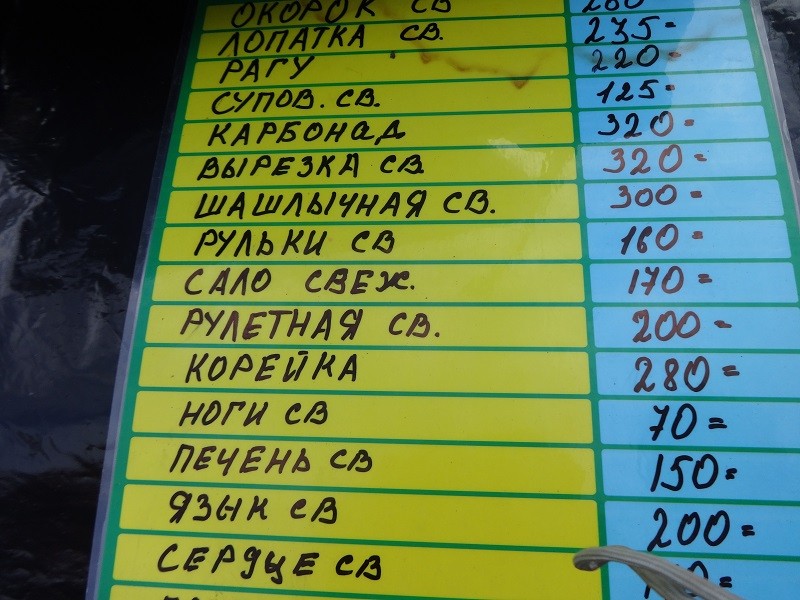 ОКОРОК СВ 280
ЛОПАТКА СВ. 235=
РАГУ 220=
СУПОВ. СВ. 125=
КАРБОНАД 320=
ВЫРЕЗКА СВ 320=
ШАШЛЫЧНАЯ СВ. 300=
РУЛЬКИ СВ 160=
САЛО СВЕЖ. 170=
РУЛЕТНАЯ СВ. 200=
КОРЕЙКА 280=
НОГИ СВ 70=
ПЕЧЕНЬ СВ 150=
ЯЗЫК СВ 200=
СЕРДЦЕ СВ